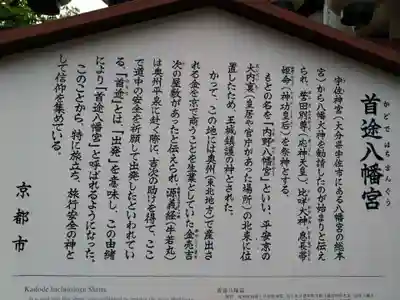 かどではちまんぐう
首途八幡宮
宇佐神宮(大分県宇佐市にある八幡宮の総本
宮)から八幡大神を勧請したのが始まりと伝え
られ、誉田別尊(応神天皇)・比咩大神・息長帯
姫命(神功皇后)を祭神とする。
もとの名を「内野八幡」といい、平安京の
大内裏(皇居や官庁があった場所)の北東に位
置したため、王城鎮護の神とされた。
かつて、この地には奥州(東北地方)で産出さ
れる金を京で商うことを生業としていた金売吉
次の屋敷があったと伝えられ、源義経(牛若丸)
は奥州平泉に赴く際に、吉次の助けを得て、ここ
で道中の安全を祈願して出発したといわれてい
る。「首途」とは、「出発」を意味し、この由緒
により「首途八幡宮」と呼ばれるようになった。
このことから、特に旅立ち、旅行安全の神と
して信仰を集めている。
京都市
Kadode Hachimangu Shrine
首途八幡宮